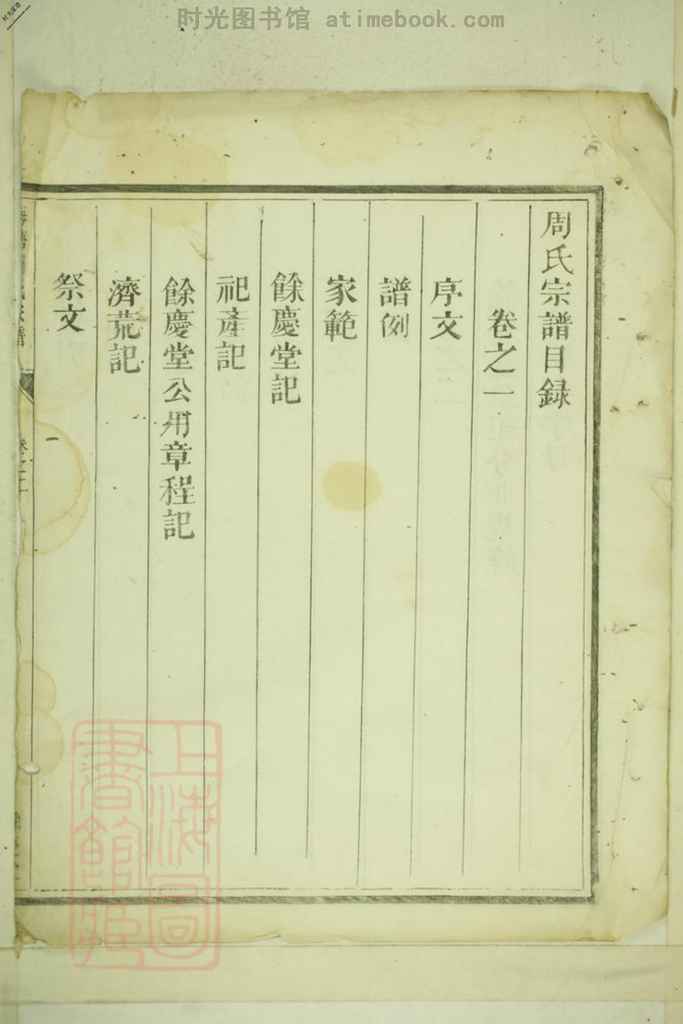 时光图书馆 atimebook.com
周氏宗譜目録
卷之一
序文
譜例
家範
餘慶堂記
祀產記
餘慶堂公用章程記
濟荒記
祭文
上海圖書館藏